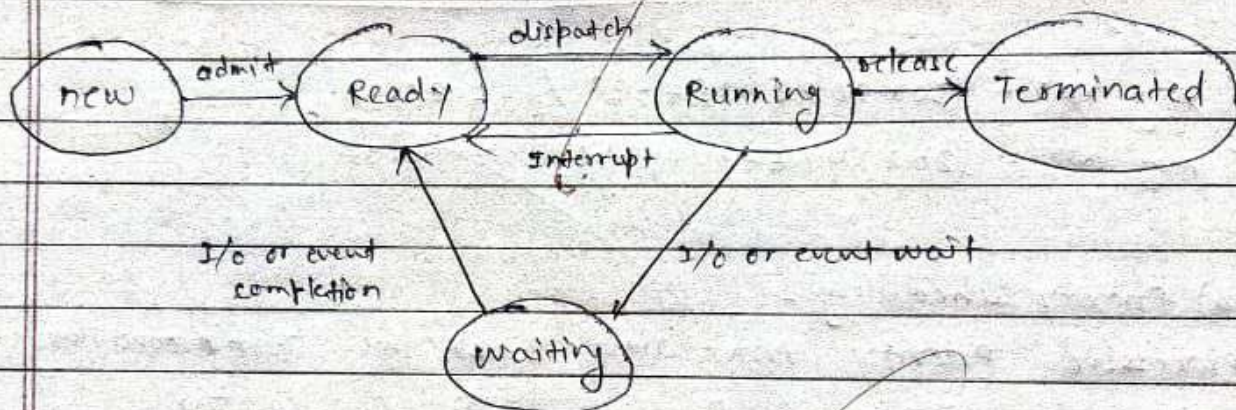 dispatch
new
admit
Ready
Running
release
Terminated
Interrupt
I/o or event
completion
I/o or event wait
waiting